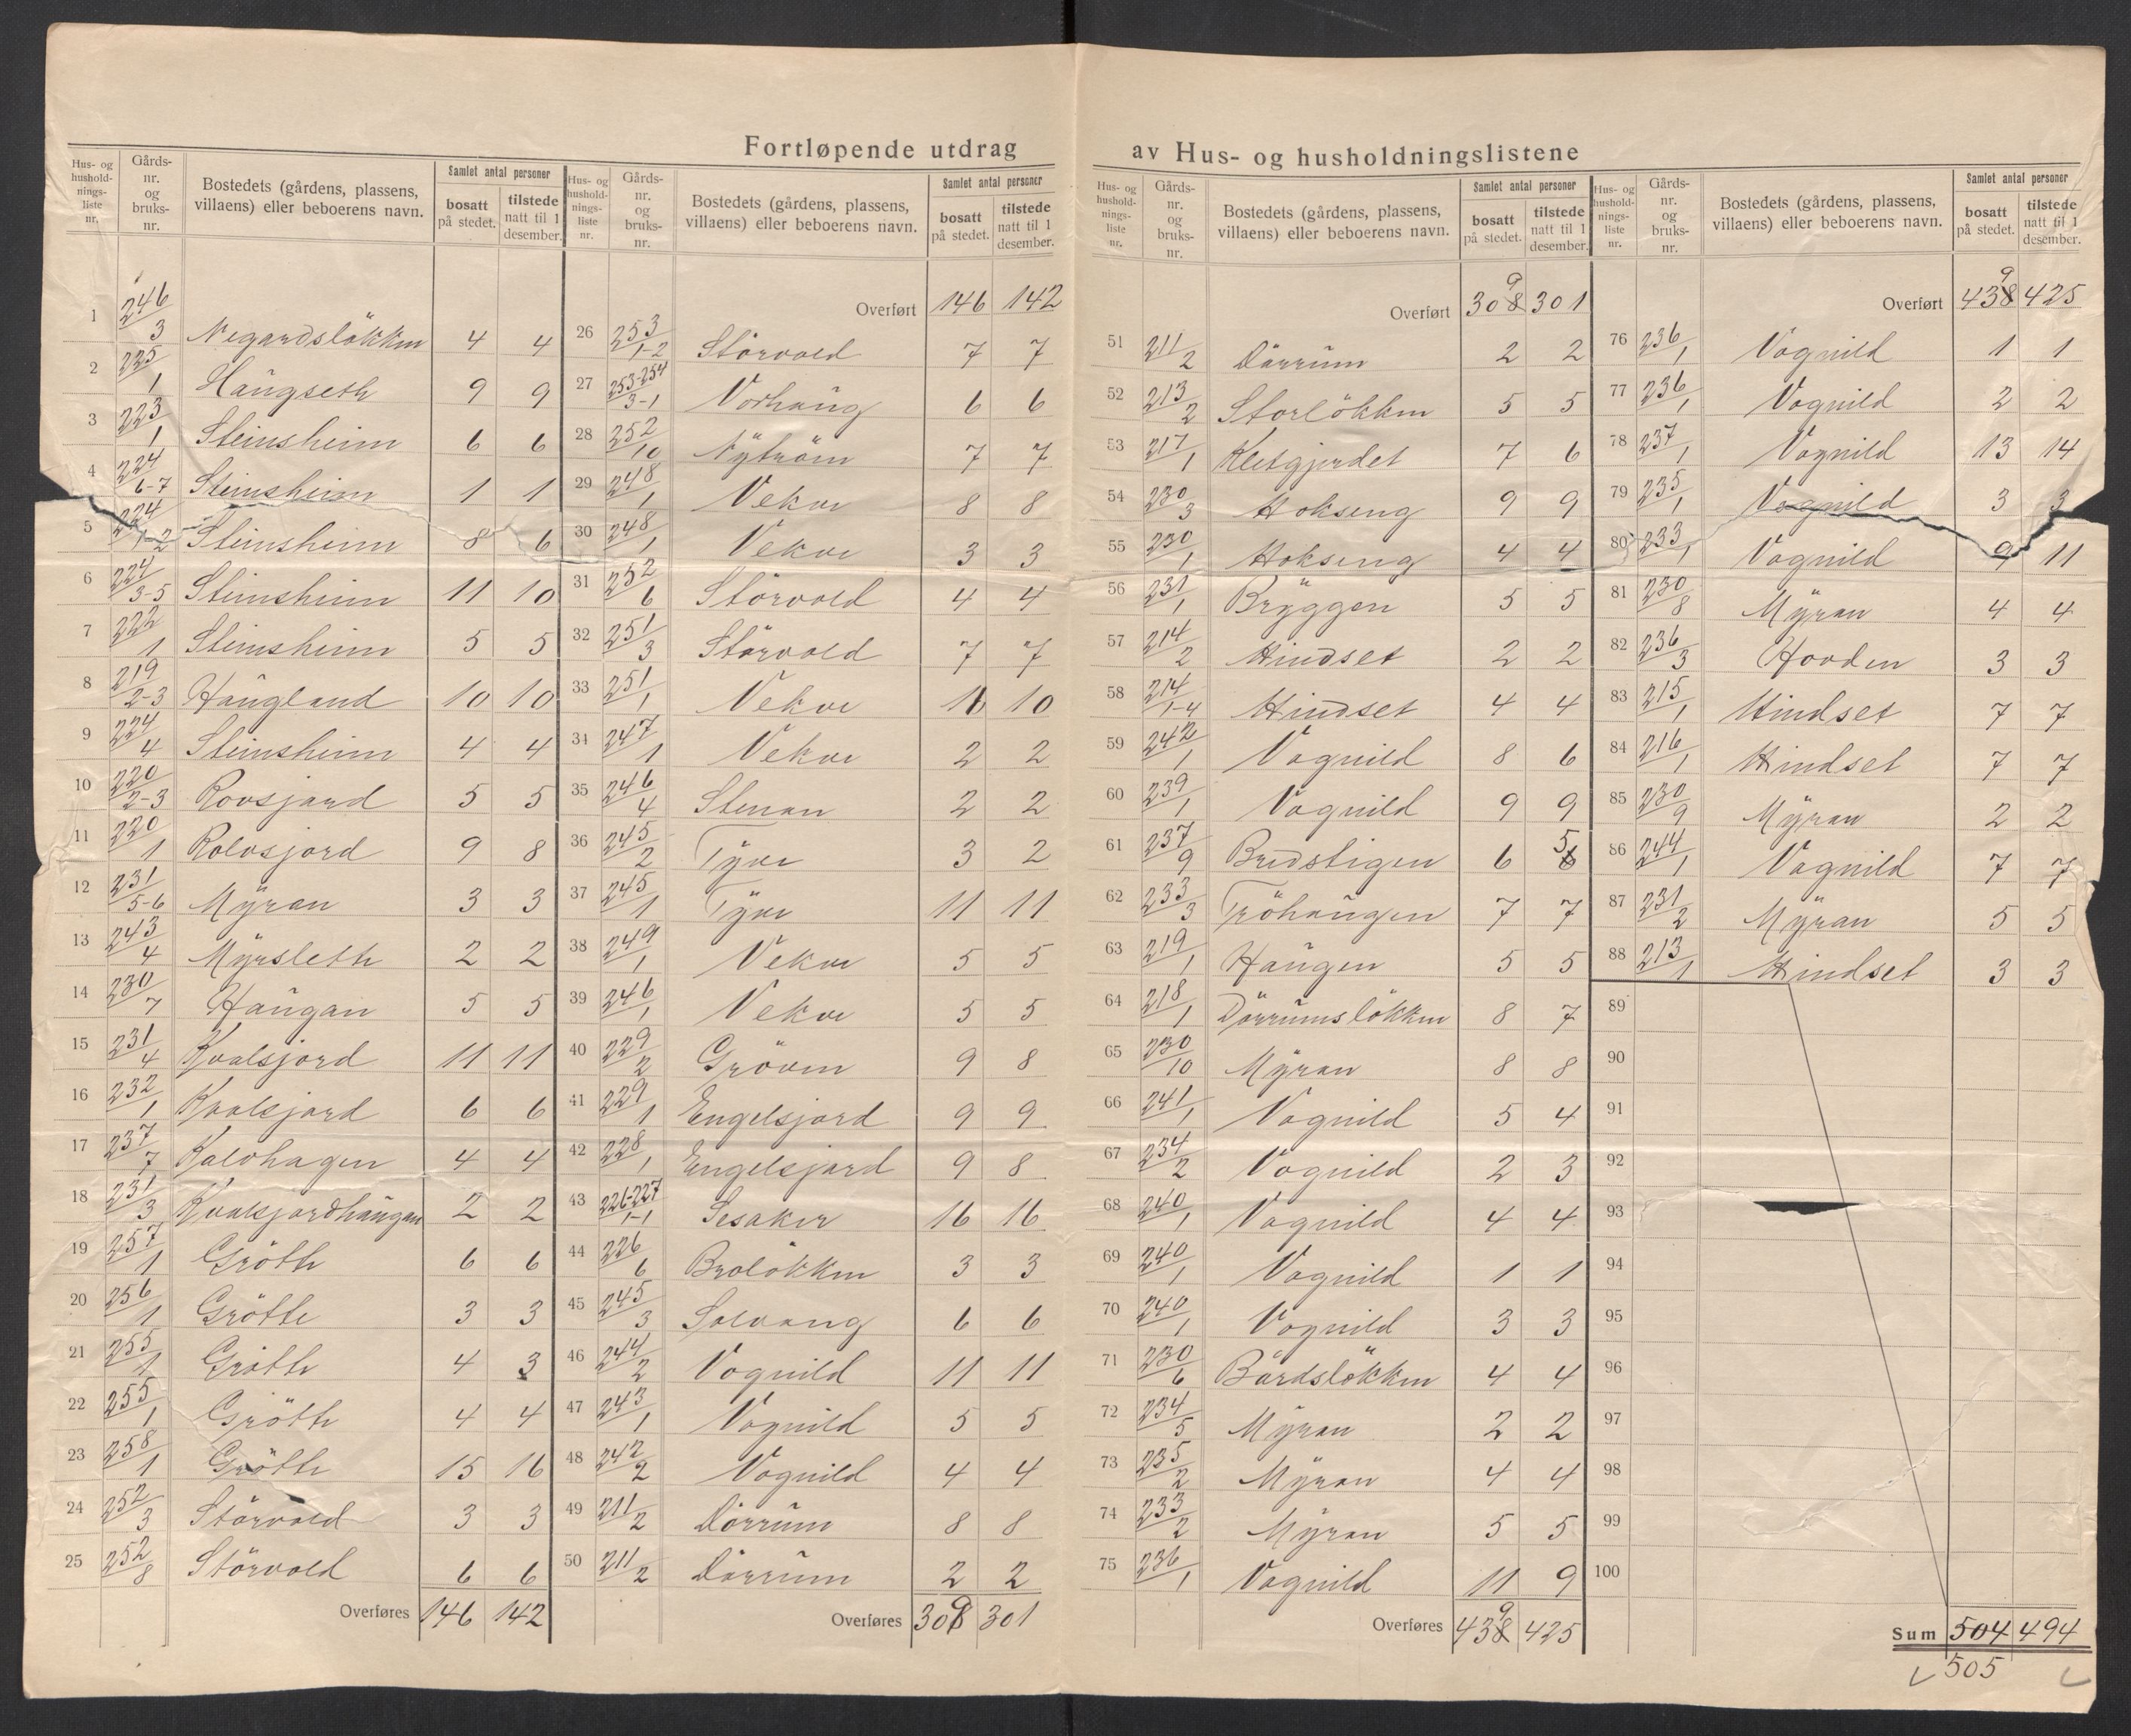 Fortløpende utdrag av Hus- og husholdningslistene
Hus- og husholdnings-liste nr. | Gårds-nr. og bruks-nr. | Bostedets (gårdens, plassens, villaens) eller beboerens navn. | Samlet antal personer bosatt på stedet. | tilstede natt til 1 desember.
1 246/3 Negardslökken 4 4
2 225/1 Haugseth 9 9
3 223/1 Steinsheim 6 6
4 224/6-7 Steinsheim 1 1
5 224/1-2 Steinsheim 8 6
6 224/3-5 Steinsheim 11 10
7 222/1 Steinsheim 5 5
8 219/2-3 Haugland 10 10
9 224/4 Steinsheim 4 4
10 220/2-3 Rovsjord 5 5
11 220/1 Rolvsjord 9 8
12 231/5-6 Myran 3 3
13 243/4 Myrsleth 2 2
14 230/7 Haugan 5 5
15 231/4 Kvalsjord 11 11
16 232/1 Kvalsjord 6 6
17 237/7 Kalvhagen 4 4
18 231/3 Kvalsjordhaugan 2 2
19 257/1 Grötte 6 6
20 256/1 Grötte 3 3
21 255/1 Grötte 4 3
22 255/1 Grötte 4 4
23 258/1 Grötte 15 16
24 252/3 Störvold 3 3
25 252/8 Störvold 6 6
Overføres 146 142
Hus- og husholdnings-liste nr. | Gårds-nr. og bruks-nr. | Bostedets (gårdens, plassens, villaens) eller beboerens navn. | Samlet antal personer bosatt på stedet. | tilstede natt til 1 desember.
Overført 146 142
26 253/1-2 Störvold 7 7
27 253-254/3-1 Vorhaug 6 6
28 252/10 Nytröm 7 7
29 248/1 Vekve 8 8
30 248/1 Vekve 3 3
31 252/6 Störvold 4 4
32 251/3 Störvold 7 7
33 251/1 Vekve 10
34 247/1 Vekve 2 2
35 246/4 Stenan 2 2
36 245/2 Tyve 3 2
37 245/1 Tyve 11 11
38 249/1 Vekve 5 5
39 246/1 Vekve 5 5
40 229/2 Gröven 9 8
41 229/1 Engelsjord 9 9
42 228/1 Engelsjord 9 8
43 226-227/1-1 Sesaker 16 16
44 226/6 Brolökken 3 3
45 245/3 Solvang 6 6
46 244/2 Vognild 11 11
47 243/1 Vognild 5 5
48 242/2 Vognild 4 4
49 211/2 Dörrum 8 8
50 211/2 Dörrum 2 2
Overføres 309 301
Hus- og husholdnings-liste nr. | Gårds-nr. og bruks-nr. | Bostedets (gårdens, plassens, villaens) eller beboerens navn. | Samlet antal personer bosatt på stedet. | tilstede natt til 1 desember.
9
Overført 308 301
51 211/2 Dörrum 2 2
52 213/2 Storlökken 5 5
53 217/1 Kletgjerdet 7 6
54 230/3 Hokseng 9 9
55 230/1 Hokseng 4 4
56 231/1 Bryggen 5 5
57 214/2 Hindset 2 2
58 214/1-4 Hindset 4 4
59 242/1 Vognild 8 6
60 239/1 Vognild 9 9
61 237/9 Bredstigen 6 5
62 233/3 Tröhaugen 7 7
63 219/1 Haugen 5 5
64 218/1 Dörrumslökken 8 7
65 230/10 Myran 8 8
66 241/1 Vognild 5 4
67 234/2 Vognild 2 3
68 240/1 Vognild 4 4
69 240/1 Vognild 1 1
70 240/1 Vognild 3 3
71 230/6 Bårdslökken 4 4
72 234/5 Myran 2 2
73 235/2 Myran 4 4
74 233/2 Myran 5 5
75 236/1 Vognild 11 9
9
Overføres 438 425
Hus- og husholdnings-liste nr. | Gårds-nr. og bruks-nr. | Bostedets (gårdens, plassens, villaens) eller beboerens navn. | Samlet antal personer bosatt på stedet. | tilstede natt til 1 desember.
9
Overført 438 425
76 236/1 Vognild 1 1
77 236/1 Vognild 2 2
78 237/1 Vognild 13 14
79 235/1 Vognild 3 3
80 233/1 Vognild 9 11
81 230/8 Myran 4 4
82 236/3 Hovden 3 3
83 215/1 Hindset 7 7
84 216/1 Hindset 7 7
85 230/9 Myran 2 2
86 244/1 Vognild 7 7
87 231/2 Myran 5 5
88 213/1 Hindset 3 3
89
90
91
92
93
94
95
96
97
98
99
100
Sum 504 494
505